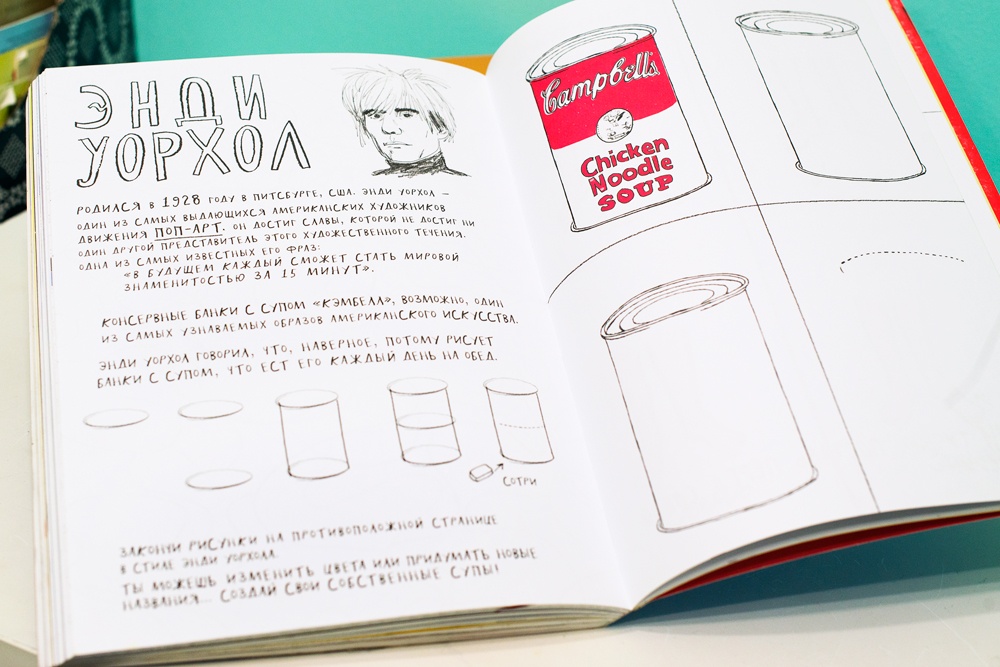 ЭНДИ
УОРХОЛ
РОДИЛСЯ В 1928 ГОДУ В ПИТСБУРГЕ, США. ЭНДИ УОРХОЛ –
ОДИН ИЗ САМЫХ ВЫДАЮЩИХСЯ АМЕРИКАНСКИХ ХУДОЖНИКОВ
ДВИЖЕНИЯ ПОП-АРТ. ОН ДОСТИГ СЛАВЫ, КОТОРОЙ НЕ ДОСТИГ НИ
ОДИН ДРУГОЙ ПРЕДСТАВИТЕЛЬ ЭТОГО ХУДОЖЕСТВЕННОГО ТЕЧЕНИЯ.
ОДНА ИЗ САМЫХ ИЗВЕСТНЫХ ЕГО ФРАЗ:
«В БУДУЩЕМ КАЖДЫЙ СМОЖЕТ СТАТЬ МИРОВОЙ
ЗНАМЕНИТОСТЬЮ ЗА 15 МИНУТ».
КОНСЕРВНЫЕ БАНКИ С СУПОМ «КЭМБЕЛЛ», ВОЗМОЖНО, ОДИН
ИЗ САМЫХ УЗНАВАЕМЫХ ОБРАЗОВ АМЕРИКАНСКОГО ИСКУССТВА.
ЭНДИ УОРХОЛ ГОВОРИЛ, ЧТО, НАВЕРНОЕ, ПОТОМУ РИСУЕТ
БАНКИ С СУПОМ, ЧТО ЕСТ ЕГО КАЖДЫЙ ДЕНЬ НА ОБЕД.
СОТРИ
ЗАКОНЧИ РИСУНКИ НА ПРОТИВОПОЛОЖНОЙ СТРАНИЦЕ
В СТИЛЕ ЭНДИ УОРХОЛА
ТЫ МОЖЕШЬ ИЗМЕНИТЬ ЦВЕТА ИЛИ ПРИДУМАТЬ НОВЫЕ
НАЗВАНИЯ... СОЗДАЙ СВОИ СОБСТВЕННЫЕ СУПЫ!
Campbell's
Chicken
Noodle
SOUP